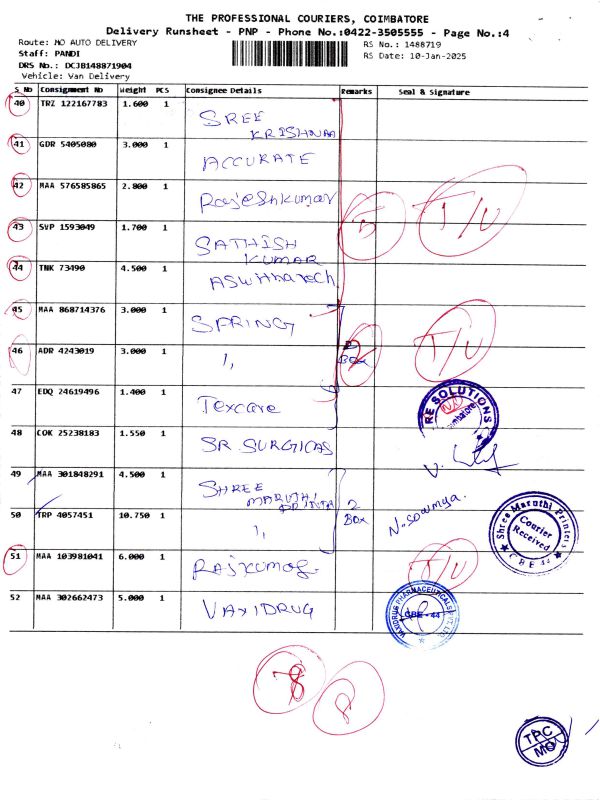 THE PROFESSIONAL COURIERS, COIMBATORE
Delivery Runsheet - PNP - Phone No.:0422-3505555 - Page No.:4
Route: MO AUTO DELIVERY
RS No.: 1488719
Staff: PANDI
RS Date: 10-Jan-2025
DRS No.: DCJB148871904
Vehicle: Van Delivery
S No Consignment No Weight PCS Consignee Details Remarks Seal & Signature
40 TRZ 122167783 1.600 1 SREE KRISHNAA
41 GDR 5405080 3.000 1 ACCURATE
42 MAA 576585865 2.800 1 Rajeshkumar
5 T/U
43 SVP 1593049 1.700 1 SATHISH KUMAR
44 TNK 73490 4.500 1 ASWithatech
45 MAA 868714376 3.000 1 SPRING
46 ADR 4243019 3.000 1 1, 2 BOX T/U
47 EDQ 24619496 1.400 1 Texcare
RE SOLUTIONS
48 COK 25238183 1.550 1 SR SURGICAS
49 MAA 301848291 4.500 1 SHREE MARUTHI PRINTA
50 TRP 4057451 10.750 1 1, 2 BOX N. Sowmya.
Shree Maruthi Printers
Courier Received
CBE 44
51 MAA 103981041 6.000 1 RAJKUMAR T/U
52 MAA 302662473 5.000 1 VAXIDRUG
VAXIDRUG PHARMACEUTICALS PVT. LTD.
CBE - 44
8
P
TPC
MO